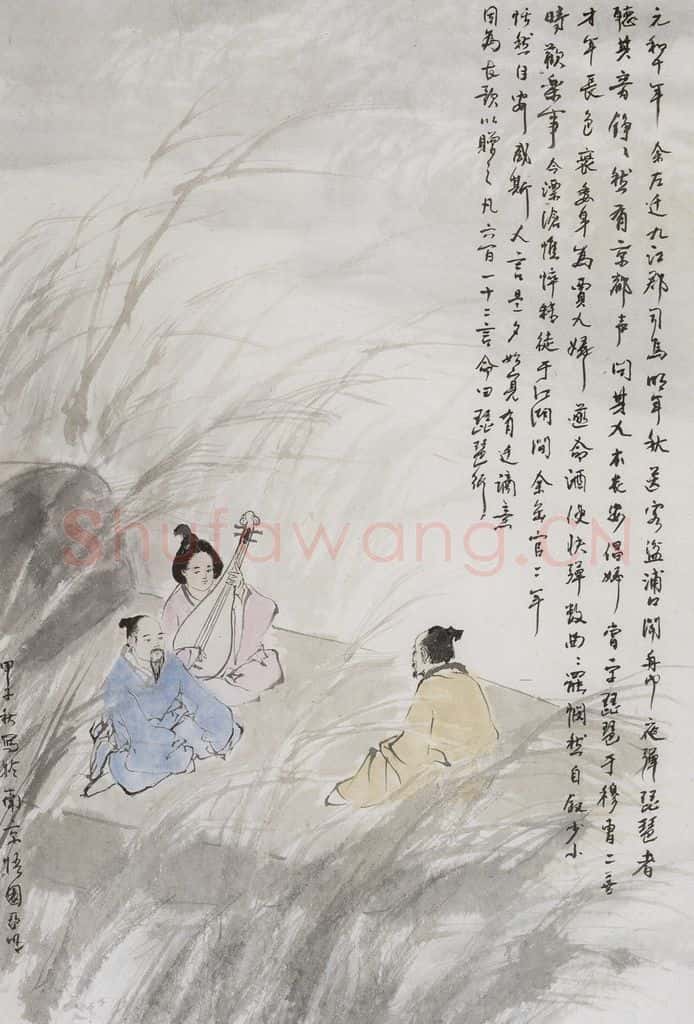 元和十年余左迁九江郡司馬明年秋送客湓浦口闻舟中夜弹琵琶者
聽其音铮々然有京都声问其人本长安倡婦嘗学琵琶于穆曹二善
才年長色衰委身為賈人婦遂命酒使快弹数曲々罷憫然自叙少小
時歡樂事今漂淪憔悴转徒于江湖间余出官二年
恬然自安感斯人言是夕始覚有迁謫意
因為長歌以贈之凡六百一十二言命曰琵琶行
甲子秋寫於南京悟園亞明
Shufawang.CN